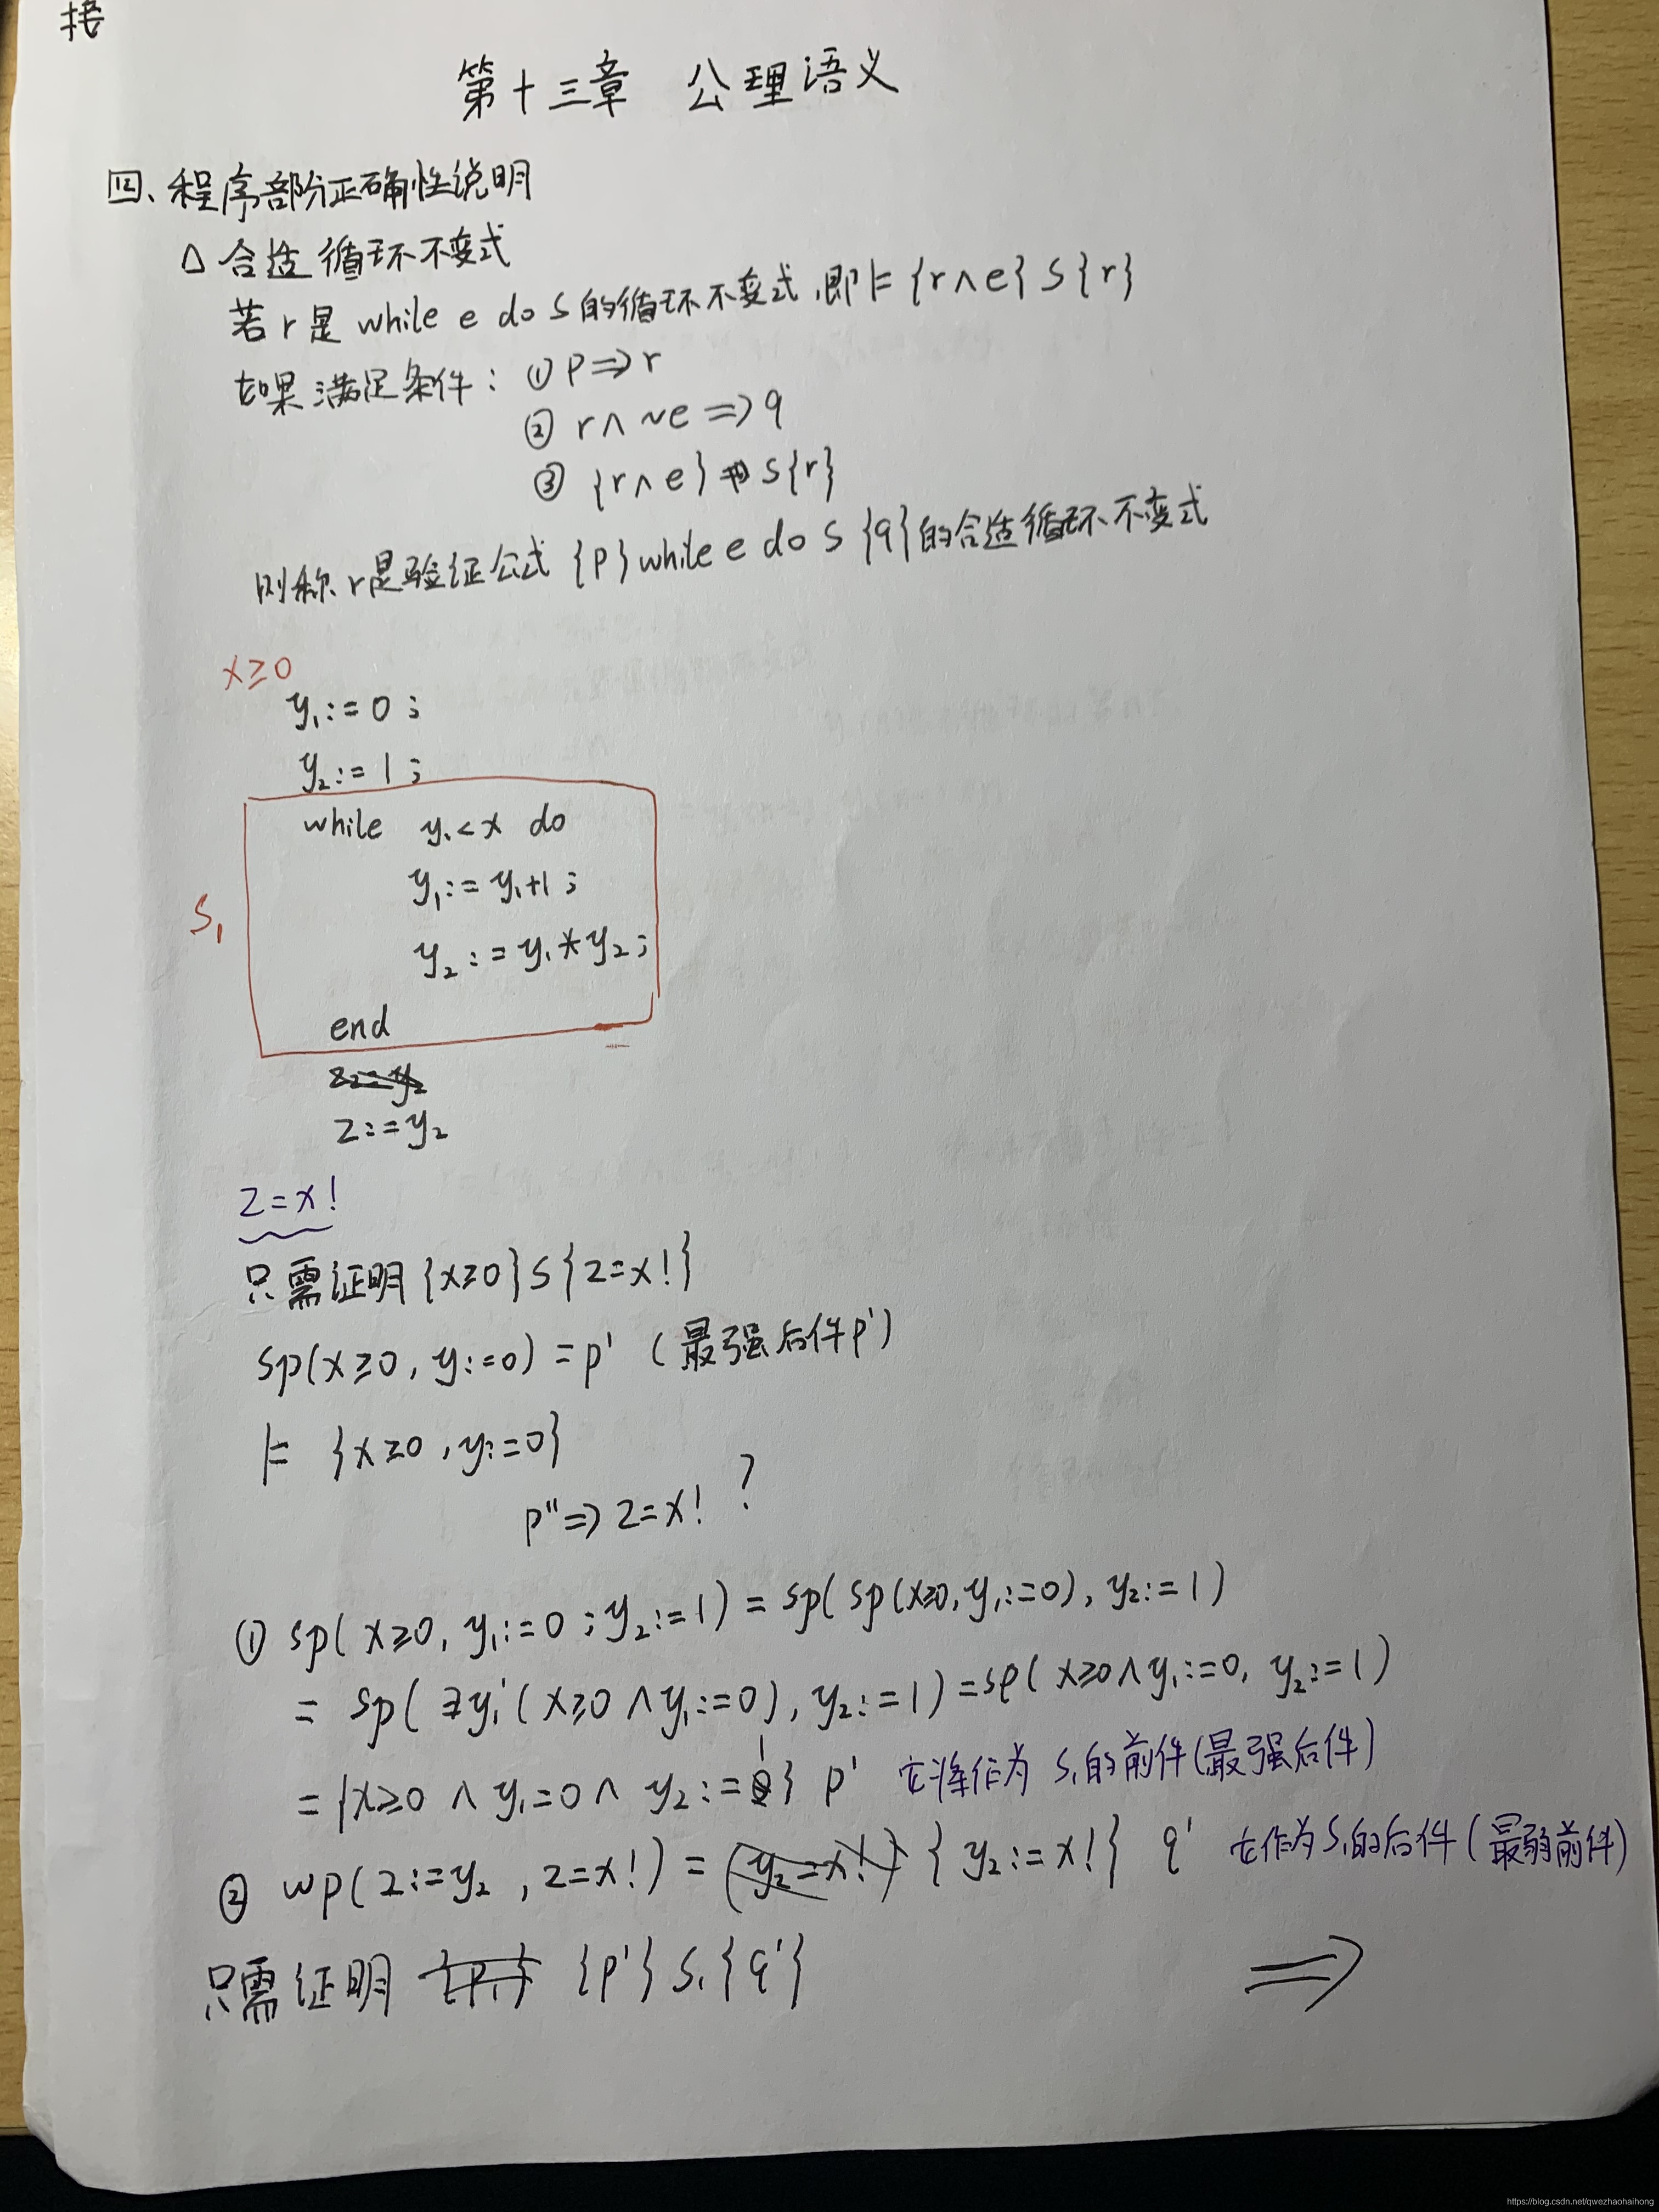 接
第十三章 公理语义
四、程序部分正确性说明
△ 合适循环不变式
若 r 是 while e do S 的循环不变式,即 ⊨ {r∧e} S {r}
如果满足条件: ① p⇒r
② r∧~e ⇒ q
③ {r∧e} S{r}
则称 r是验证公式 {p} while e do S {q}的合适循环不变式
x≥0
y₁:=0;
y₂:=1;
while y₁<x do
S₁
y₁:=y₁+1;
y₂:=y₁*y₂;
end
z:=y₂
z:=y₂
z=x!
只需证明{x≥0}S{z=x!}
sp(x≥0, y:=0)=p' (最强后件p')
⊨ {x≥0, y:=0}
p''⇒z=x! ?
① sp(x≥0, y₁:=0;y₂:=1)=sp(sp(x≥0,y₁:=0), y₂:=1)
= sp(∃y₁'(x≥0∧y₁:=0), y₂:=1)=sp(x≥0∧y₁:=0, y₂:=1)
={x≥0∧y₁=0∧y₂:=1} p' 它将作为 S₁的前件(最强后件)
② wp(z:=y₂,z=x!)=(y₂=x!) {y₂:=x!} q' 它作为S₁的后件(最弱前件)
只需证明 {p'}S₁{q'} ⇒
https://blog.csdn.net/qwezhaohaihong